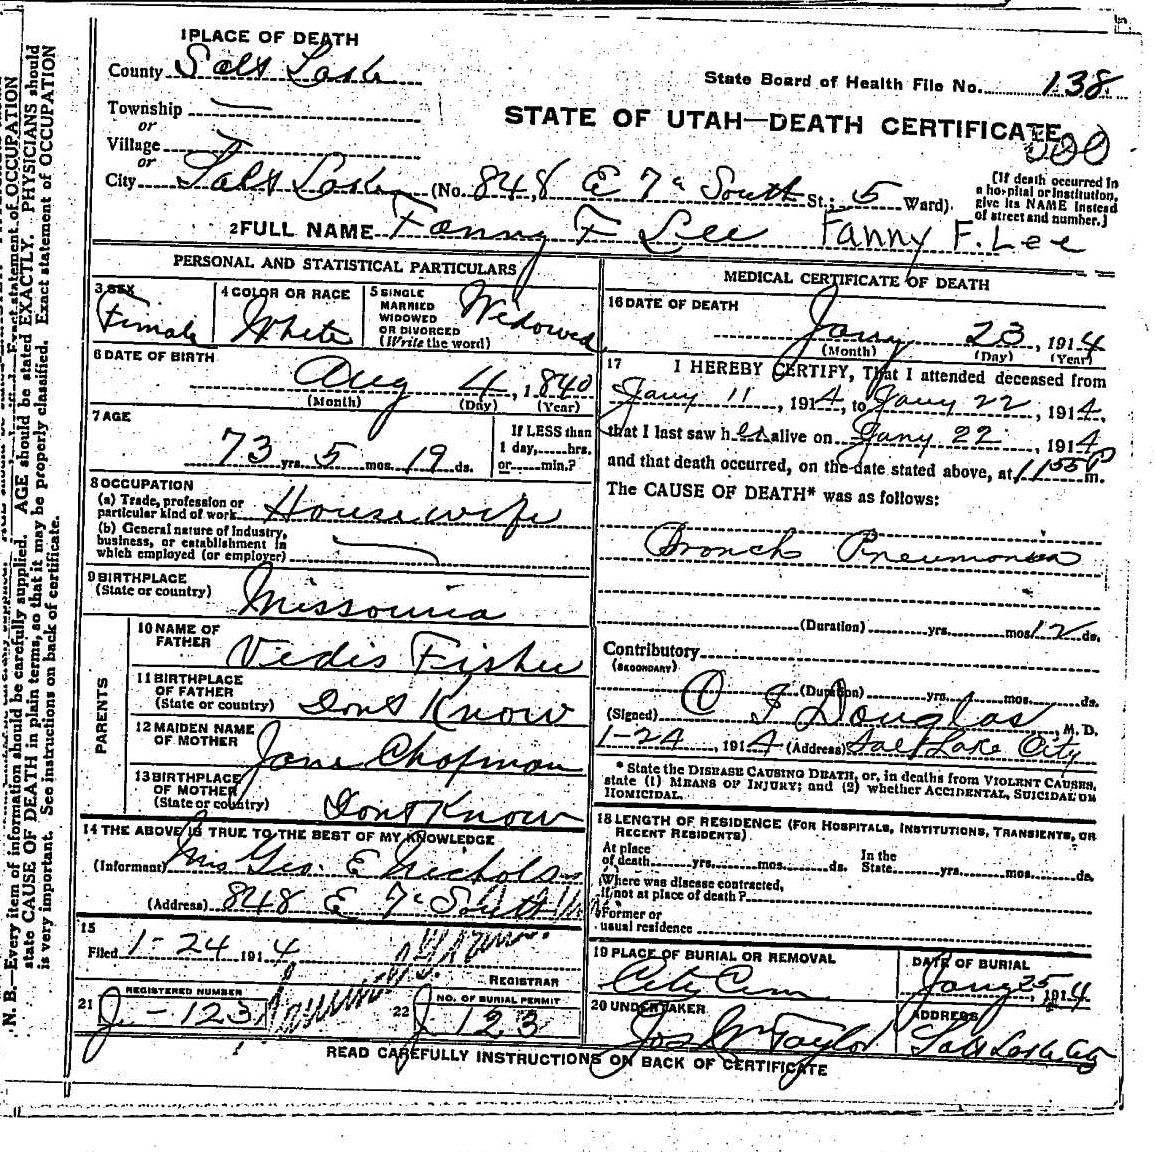 1 PLACE OF DEATH
County Salt Lake
State Board of Health File No. 138
Township —
or
Village
or
STATE OF UTAH—DEATH CERTIFICATE
City Salt Lake (No. 848 E 7th South St.; 5 Ward).
[If death occurred in
a hospital or institution,
give its NAME instead
of street and number.]
2 FULL NAME Fanny F Lee Fanny F. Lee
PERSONAL AND STATISTICAL PARTICULARS
3 SEX
Female
4 COLOR OR RACE
White
5 SINGLE
MARRIED
WIDOWED
OR DIVORCED
(Write the word)
Widowed
6 DATE OF BIRTH
Aug 4, 1840
(Month) (Day) (Year)
7 AGE
73 yrs. 5 mos. 19 ds.
If LESS than
1 day, hrs.
or min.?
8 OCCUPATION
(a) Trade, profession or
particular kind of work Housewife
(b) General nature of industry,
business, or establishment in
which employed (or employer)
9 BIRTHPLACE
(State or country)
PARENTS
10 NAME OF
FATHER
Fisher
11 BIRTHPLACE
OF FATHER
(State or country) Dont Know
12 MAIDEN NAME
OF MOTHER Jane Chapman
13 BIRTHPLACE
OF MOTHER
(State or country) Dont Know
14 THE ABOVE IS TRUE TO THE BEST OF MY KNOWLEDGE
(Informant) Mrs Geo. E Nichols
(Address) 848 E 7th South
15
Filed 1-24 1914
REGISTRAR
21 REGISTERED NUMBER
J-123
22 NO. OF BURIAL PERMIT
J 123
MEDICAL CERTIFICATE OF DEATH
16 DATE OF DEATH
Jany 23, 1914
(Month) (Day) (Year)
17 I HEREBY CERTIFY, That I attended deceased from
Jany 11, 1914, to Jany 22, 1914,
that I last saw her alive on Jany 22, 1914
and that death occurred, on the date stated above, at 11 55 P m.
The CAUSE OF DEATH* was as follows:
Broncho Pneumonia
(Duration) yrs. mos. 12 ds.
Contributory
(SECONDARY)
(Duration) yrs. mos. ds.
(Signed) Douglas M. D.
1-24, 1914 (Address) Salt Lake City
* State the DISEASE CAUSING DEATH, or, in deaths from VIOLENT CAUSES,
state (1) MEANS OF INJURY; and (2) whether ACCIDENTAL, SUICIDAL OR
HOMICIDAL.
18 LENGTH OF RESIDENCE (FOR HOSPITALS, INSTITUTIONS, TRANSIENTS, OR
RECENT RESIDENTS)
At place
of death yrs. mos. ds.
In the
State yrs. mos. ds.
Where was disease contracted,
if not at place of death?
Former or
usual residence
19 PLACE OF BURIAL OR REMOVAL
City Cem
DATE OF BURIAL
Jany 25, 1914
20 UNDERTAKER
Jos Wm Taylor
ADDRESS
Salt Lake City
READ CAREFULLY INSTRUCTIONS ON BACK OF CERTIFICATE
N. B.—Every item of information should be carefully supplied. AGE should be stated EXACTLY. PHYSICIANS should
state CAUSE OF DEATH in plain terms, so that it may be properly classified. Exact statement of OCCUPATION
is very important. See instructions on back of certificate.